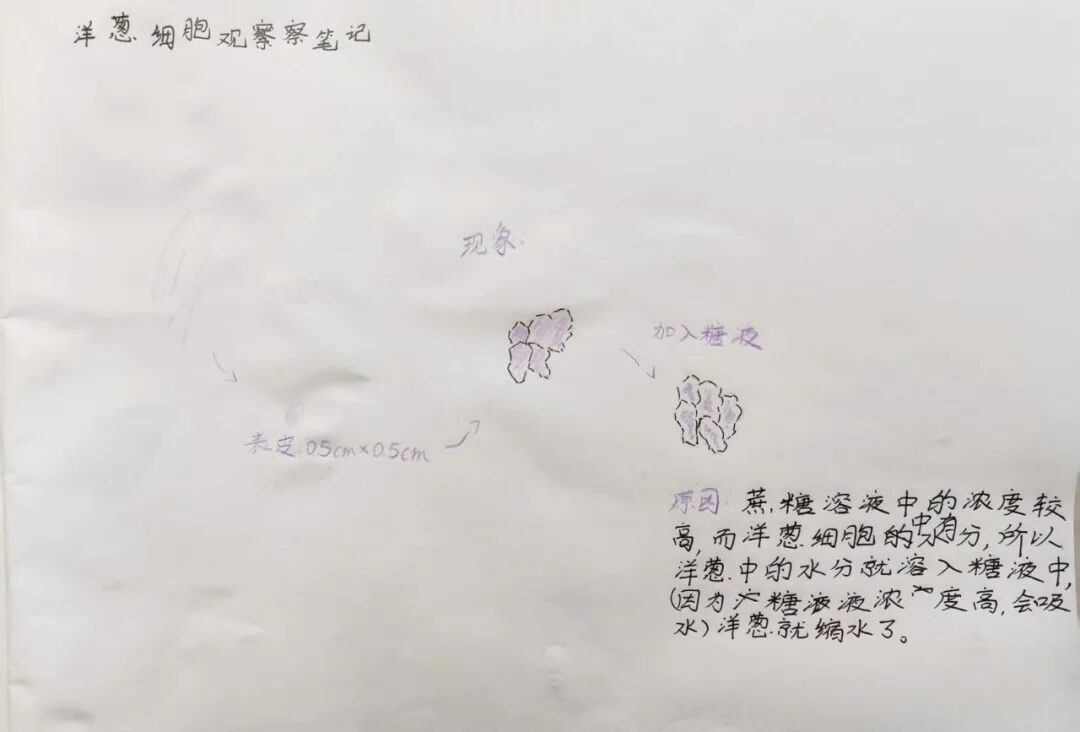 洋葱细胞观察察笔记
现象:
加入糖液
表皮 05cm×0.5cm
原因: 蔗糖溶液中的浓度较
高,而洋葱细胞的中有水分,所以
洋葱中的水分就溶入糖液中,
(因为糖液液浓度高,会吸
水)洋葱就缩水了。